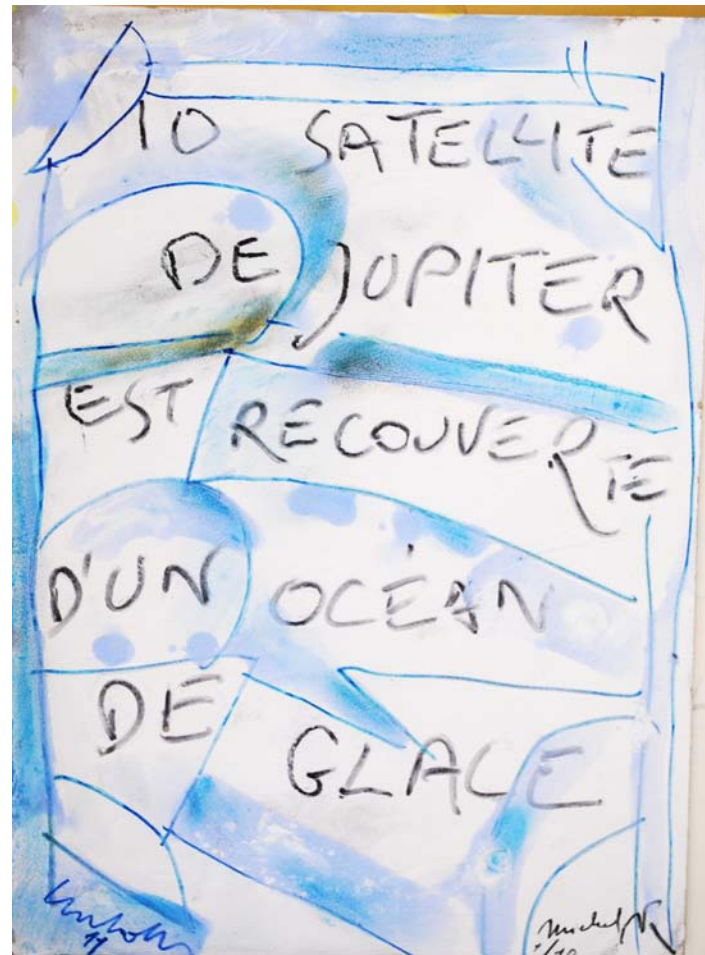 IO SATELLITE
DE JUPITER
EST RECOUVERTE
D'UN OCÉAN
DE GLACE